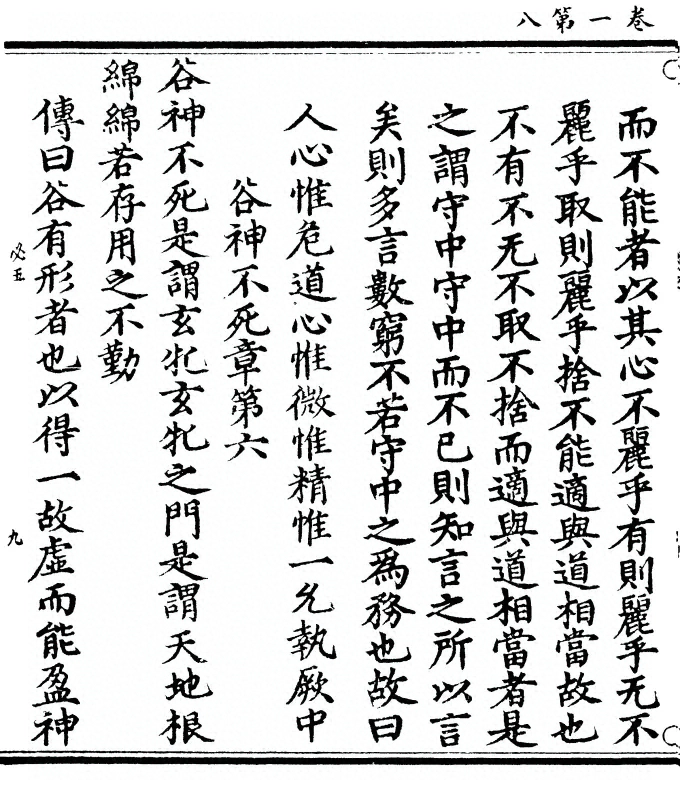 卷一第八
而不能者以其心不麗乎有則麗乎无不
麗乎取則麗乎捨不能適與道相當故也
不有不无不取不捨而適與道相當者是
之謂守中守中而不已則知言之所以言
矣則多言數窮不若守中之為務也故曰
人心惟危道心惟微惟精惟一允執厥中
谷神不死章第六
谷神不死是謂玄牝玄牝之門是謂天地根
綿綿若存用之不勤
傳曰谷有形者也以得一故虛而能盈神
必五
九